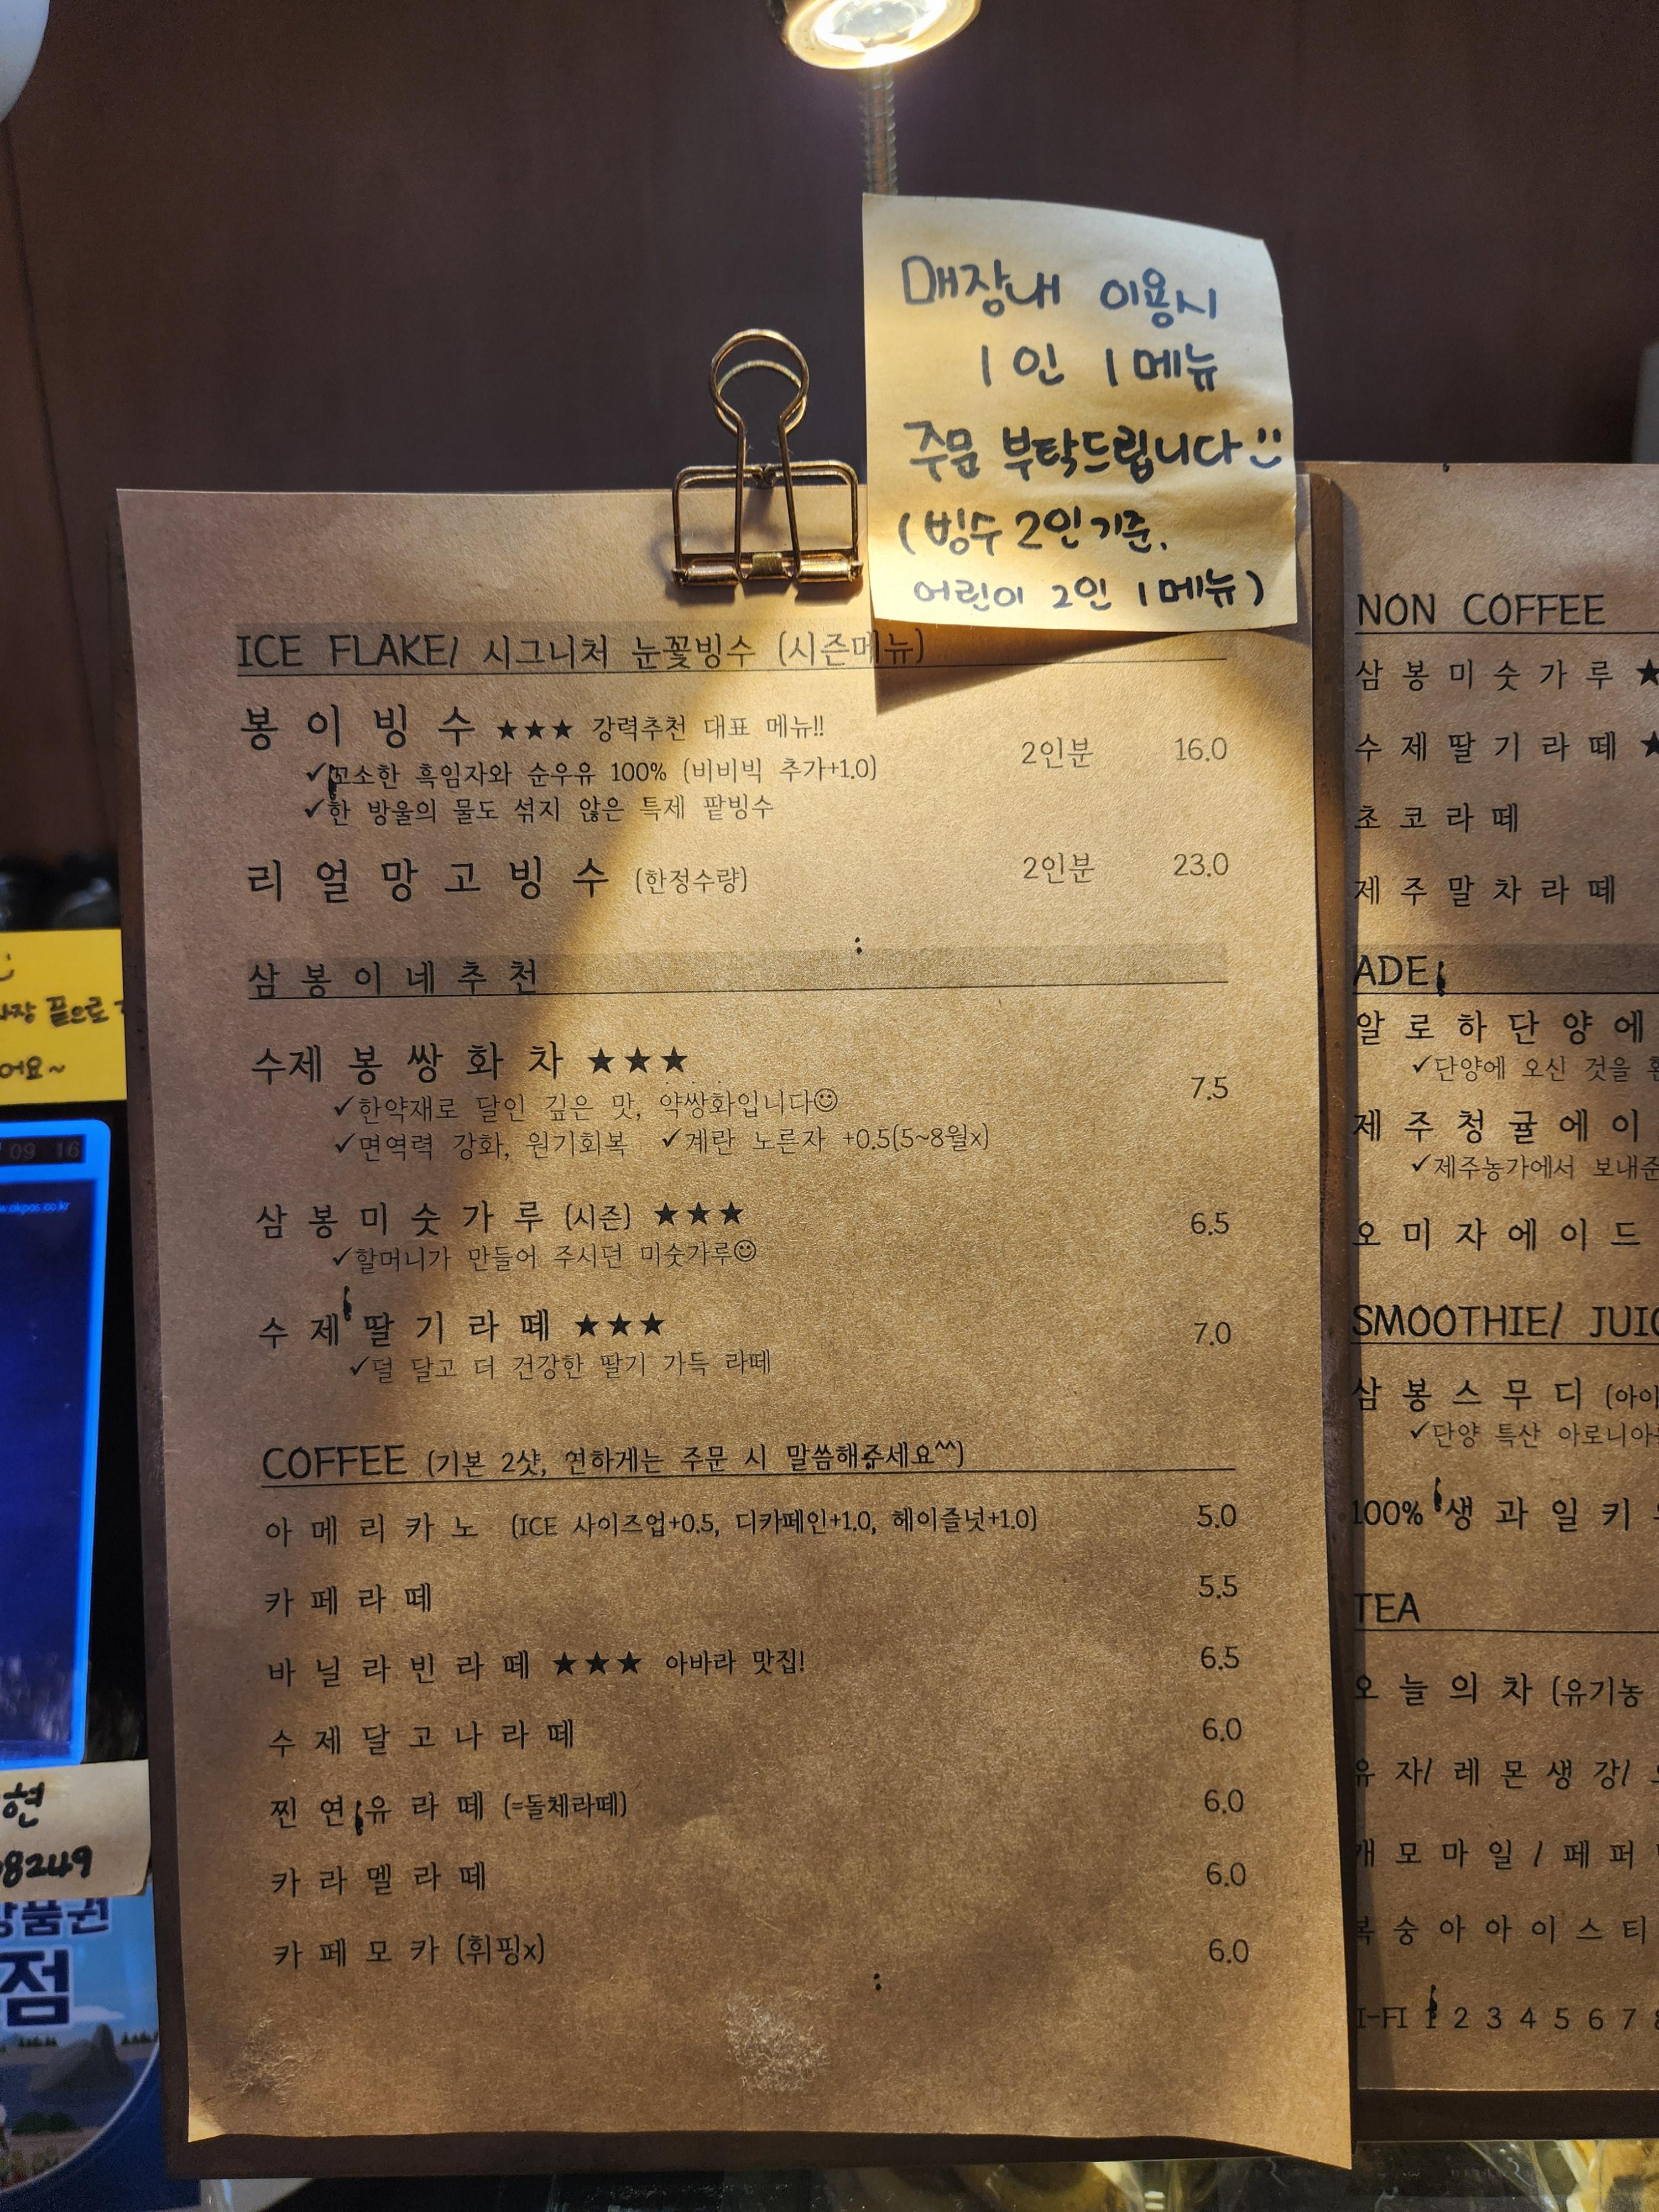 매장내 이용시
1인 1메뉴
주문 부탁드립니다
(빙수 2인기준.
어린이 2인 1메뉴)
ICE FLAKE/ 시그니처 눈꽃빙수 (시즌메뉴)
봉이빙수 ★★★ 강력추천 대표 메뉴!! 2인분 16.0
✓꼬소한 흑임자와 순우유 100% (비비빅 추가+1.0)
✓한 방울의 물도 섞지 않은 특제 팥빙수
리얼망고빙수 (한정수량) 2인분 23.0
삼봉이네추천
수제 봉쌍화차 ★★★ 7.5
✓한약재로 달인 깊은 맛, 약쌍화입니다☺
✓면역력 강화, 원기회복 ✓계란 노른자 +0.5(5~8월x)
삼봉미숫가루 (시즌) ★★★ 6.5
✓할머니가 만들어 주시던 미숫가루☺
수제딸기라떼 ★★★ 7.0
✓덜 달고 더 건강한 딸기 가득 라떼
COFFEE (기본 2샷, 연하게는 주문 시 말씀해주세요^^)
아메리카노 (ICE 사이즈업+0.5, 디카페인+1.0, 헤이즐넛+1.0) 5.0
카페라떼 5.5
바닐라빈라떼 ★★★ 아바라 맛집! 6.5
수제달고나라떼 6.0
찐연유라떼 (=돌체라떼) 6.0
카라멜라떼 6.0
카페모카 (휘핑x) 6.0
NON COFFEE
삼봉미숫가루 ★
수제딸기라떼 ★
초코라떼
제주말차라떼
ADE
알로하단양에
✓단양에 오신 것을 환
제주청귤에이
✓제주농가에서 보내준
오미자에이드
SMOOTHIE/ JUIC
삼봉스무디 (아이
✓단양 특산 아로니아
100% 생과일키
TEA
오늘의차 (유기농
유자/ 레몬생강/
캐모마일 / 페퍼
복숭아아이스티
I-FI 1 2 3 4 5 6 7
끝으로
어요~
09 16
w.okpos.co.kr
현
8249
상품권
점